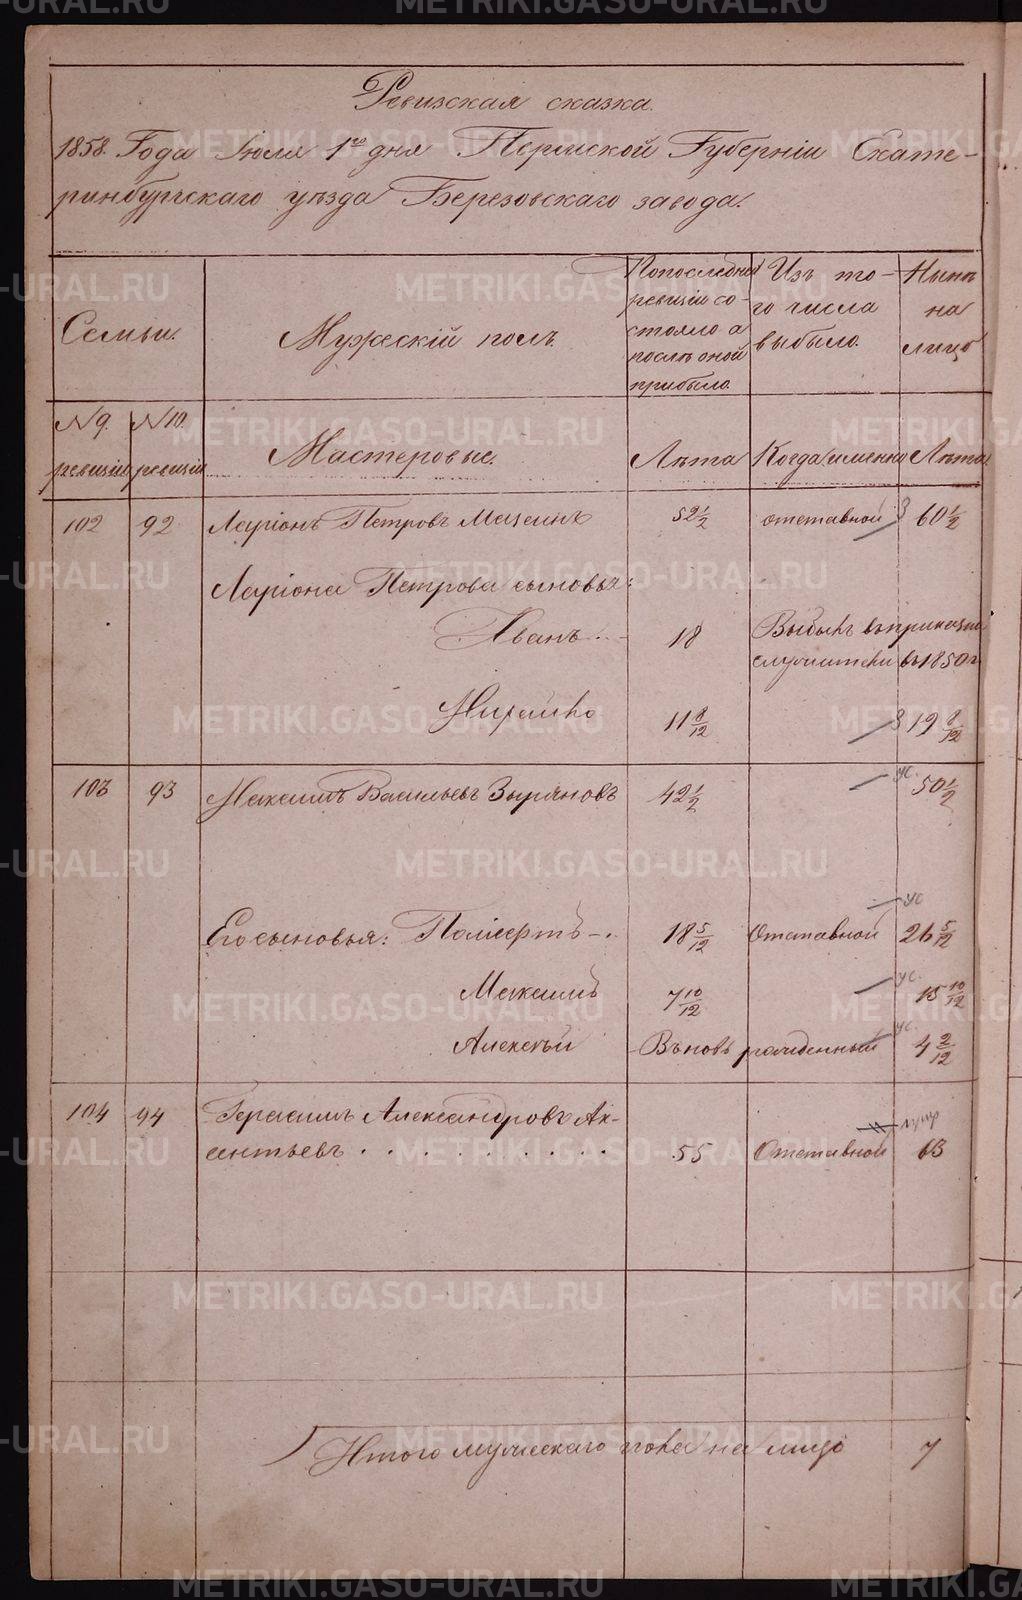 Ревизская сказка.
1858. Года Июля 1го дня Пермской Губерніи Екате-
ринбургскаго уѣзда Березовскаго завода.
Семьи.
Мужескій полъ.
По последней
ревизіи со-
стояло а
послѣ оной
прибыло.
Изъ то-
го числа
выбыло.
Нынѣ
на
лицо
N 9. ревизіи
N 10. ревизіи
Мастеровые.
Лѣта
Когда именно
Лѣта
102 92 Ларіонъ Петровъ 52 1/2 отставной 60 1/2
Ларіона Петрова сыновья:
Иванъ 18 Выбылъ
въ 1850 г
Михайло 11 8/12 19 8/12
103 93 Максимъ Васильевъ Зыряновъ 42 1/2 ус. 50 1/2
ус
Его сыновья: 18 5/12 Отставной 26 5/12
Максимъ 7 10/12 ус. 15 10/12
Алексѣй Вновь рожденный ус. 4 2/12
104 94 Герасимъ Александровъ Ак-
сентьевъ 55 Отставной 63
Итого мужескаго пола на лицо 7
METRIKI.GASO-URAL.RU